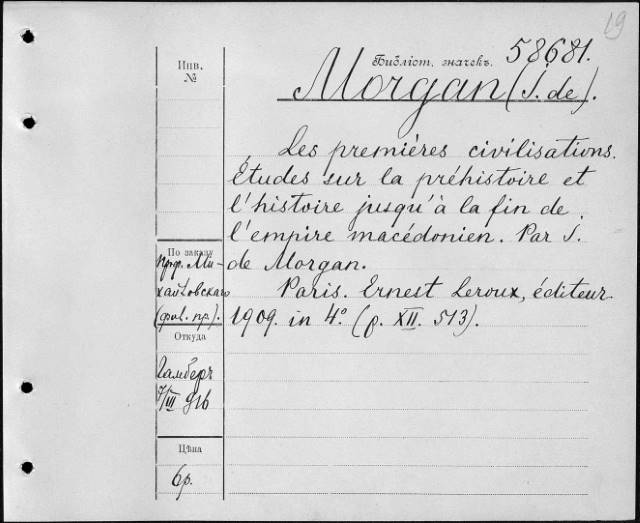 19
Инв.
№
Библіот. значекъ. 58681.
Morgan (J. de).
Les premières civilisations.
Études sur la préhistoire et
l'histoire jusqu'à la fin de
l'empire macédonien. Par J.
de Morgan.
Paris. Ernest Leroux, éditeur
1909. in 4º (p. XII. 513).
По заказу
проф. Ми-
хайловскаго
Откуда
Гамберъ
7/III 916
Цѣна
6 р.